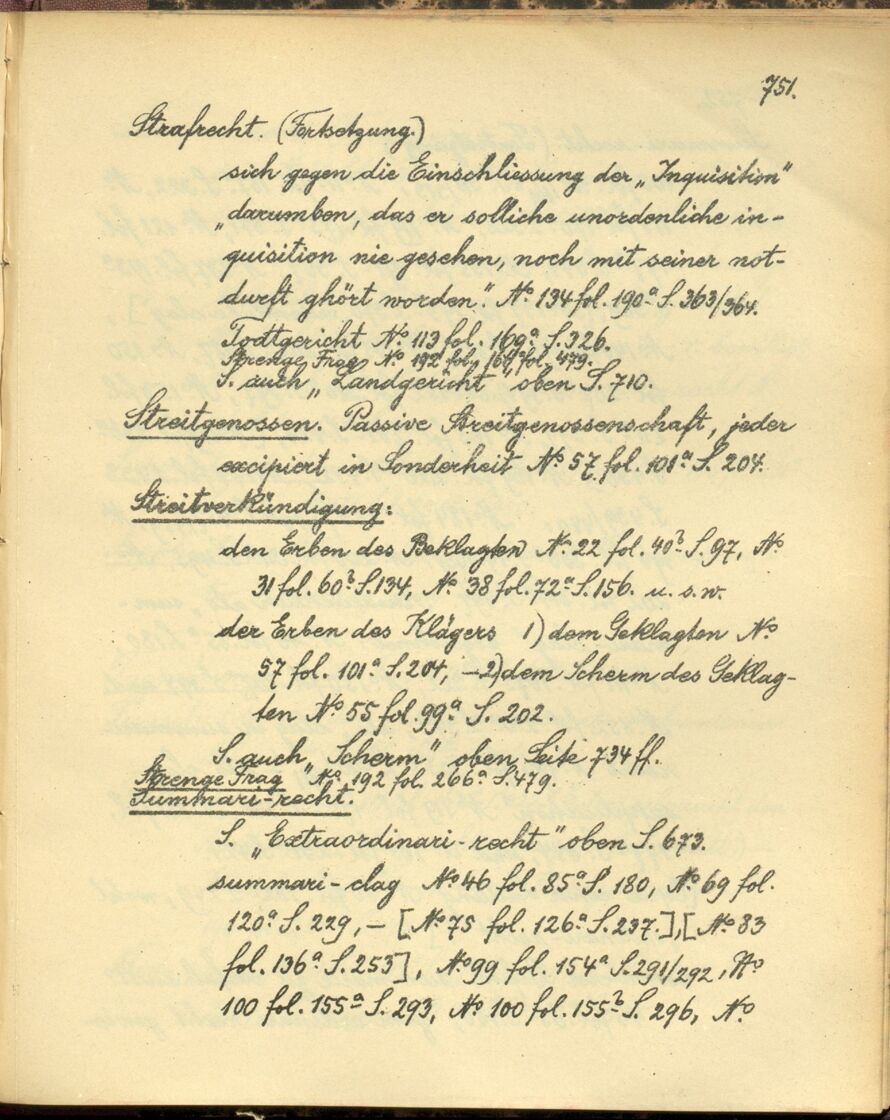 751.
Strafrecht. (Fortsetzung.)
sich gegen die Einschliessung der „Inquisition"
„darumben, das er solliche unordenliche in-
quisition nie gesehen, noch mit seiner not-
durft ghört worden." No. 134 fol. 190a S. 363/364.
Todtgericht No. 113 fol. 169a S. 326.
Strenge Frag No. 192 fol. 479.
S. auch „Landgericht" oben S. 710.
Streitgenossen. Passive Streitgenossenschaft, jeder
excipiert in Sonderheit No 57 fol. 101a S. 204.
Streitverkündigung:
den Erben des Beklagten No. 22 fol. 40b S. 97, No
31 fol. 60b S. 134, No. 38 fol. 72a S. 156. u. s. w.
der Erben des Klägers 1) dem Geklagten No.
57 fol. 101a S. 204, – 2) dem Scherm des Geklag-
ten No 55 fol. 99a S. 202.
S. auch „Scherm" oben Seite 734 ff.
Strenge Frag No. 192 fol. 266a S. 479.
Summari-recht.
S. „Extraordinari-recht" oben S. 673.
summari-clag No 46 fol. 85a S. 180, No 69 fol.
120a S. 229, – [No 75 fol. 126a S. 237.], [No 83
fol. 136a S. 253], No 99 fol. 154a S. 291/292, No
100 fol. 155a S. 293, No 100 fol. 155b S. 296, No.